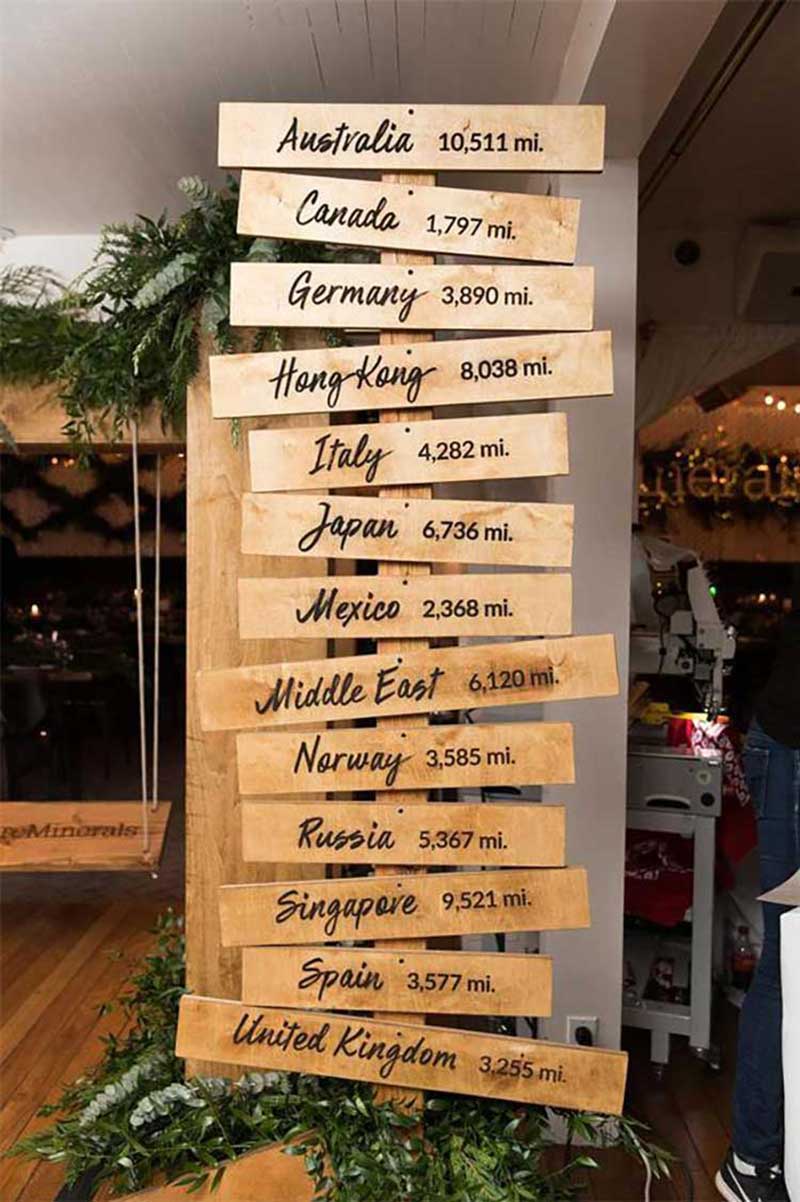 Australia 10,511 mi.
Canada 1,797 mi.
Germany 3,890 mi.
Hong Kong 8,038 mi.
Italy 4,282 mi.
Japan 6,736 mi.
Mexico 2,368 mi.
Middle East 6,120 mi.
Norway 3,585 mi.
Russia 5,367 mi.
Singapore 9,521 mi.
Spain 3,577 mi.
United Kingdom 3,255 mi.
reMinerals
nerals